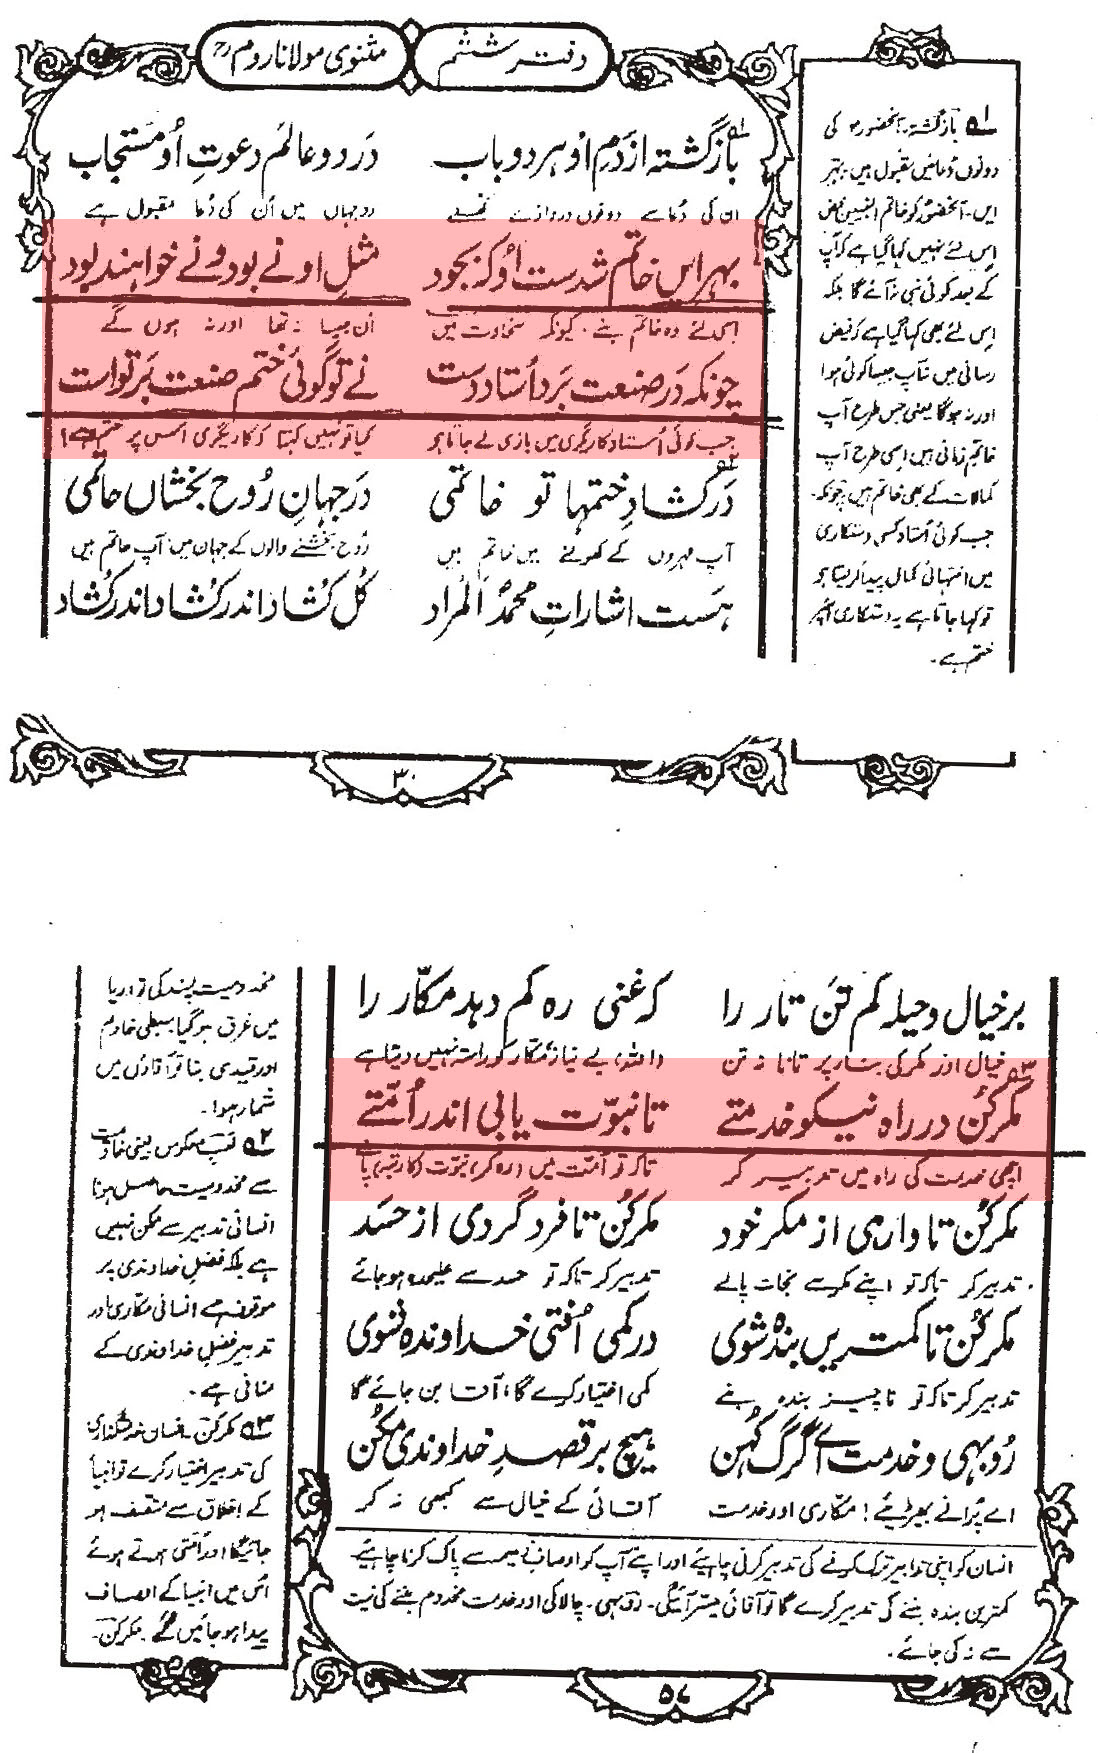 دفتر ششم
مثنوی مولانا روم رح
بازگشته از دم او هر دو باب در دو عالم دعوتِ او مستجاب
ان کی دعا سے دونوں دروازے کھلے دو جہاں میں اُن کی دُعا مقبول ہے
بہر ایں خاتم شدست اُو کہ بجود مثلِ او نے بود ونے خواہند بود
اس لئے وہ خاتم بنے، کیونکہ سخاوت میں اُن جیسا نہ تھا اور نہ ہوں گے
چونکہ در صنعت برد اُستاد دست نے تو گوئی ختم صنعت بر تو است
جب کوئی اُستاد کاریگری میں بازی لے جاتا ہو کیا تو نہیں کہتا کہ کاریگری اس پر ختم ہے!
در کشادِ ختمہا تو خاتمی در جہانِ رُوح بخشاں حاتمی
آپ مہروں کے کھولنے میں خاتم ہیں رُوح بخشنے والوں کے جہان میں آپ حاتم ہیں
ہست اشاراتِ محمدؐ المراد کل کشاد اندر کشاد اندر کشاد
۱ بازگشتہ۔ آنحضورؐ کی
دونوں دُعائیں مقبول ہیں۔ بہر
ایں۔ آنحضورؐ کو خاتم النبیین محض
اس لئے نہیں کہا گیا ہے کہ آپ
کے بعد کوئی نبی نہ آئے گا بلکہ
اس لئے بھی کہا گیا ہے کہ فیض
رسانی میں نہ آپ جیسا کوئی ہوا
اور نہ ہوگا یعنی جس طرح آپ
خاتم زمانی ہیں اسی طرح آپ
کمالات کے بھی خاتم ہیں چونکہ۔
جب کوئی اُستاد کسی دستکاری
میں انتہائی کمال پیدا کر لیتا ہو
تو کہا جاتا ہے یہ دستکاری اُس پر
ختم ہے۔
۳۰
بر خیال و حیلہ کم تن تار را کہ غنی رہ کم دہد مکّار را
خیال اور مکر کی بنا پر تانا نہ تن (اللہ) بے نیاز مکّار کو راستہ نہیں دیتا ہے
مکر کن در راہ نیکو خدمتے تا نبوّت یابی اندر اُمّتے
اچھی خدمت کی راہ میں تدبیر کر تاکہ تو اُمّت میں (رہ کر) نبوّت (کا رتبہ) پائے
مکر کن تا وارہی از مکرِ خود مکر کن تا فرد گردی از حسَد
تدبیر کر تاکہ تو اپنے مکر سے نجات پالے تدبیر کر تاکہ تو حسد سے علیحدہ ہو جائے
مکر کن تا کمتریں بندہ شوی در کمی اُفتی خداوندہ شوی
تدبیر کر تاکہ تو ناچیز بندہ بنے کمی اختیار کرے گا، آقا بن جائے گا
رُوبہی و خدمت اے گرگ کہن ہیچ بر قصدِ خداوندی مکن
اے پُرانے بھیڑیئے! مکّاری اور خدمت آقائی کے خیال سے کبھی نہ کر
انسان کو اپنی تدابیر ترک کرنے کی تدبیر کرنی چاہیئے اور اپنے آپ کو اوصافِ ذمیمہ سے پاک کرنا چاہیئے۔
کمترین بندہ بننے کی تدبیر کرے گا تو آقائی میسّر آئیگی۔ روبہی۔ چالاکی اور خدمت مخدوم بننے کی نیت
سے نہ کی جائے۔
مخدومیت پسند کی تو دریا
میں غرق ہو گیا سبطی خادم
اور قیدی بنا تو آزادی میں
شمار ہوا۔
۲ لعب معکوس یعنی خادمیت
سے مخدومیت حاصل ہونا
انسانی تدبیر سے ممکن نہیں
ہے بلکہ فضلِ خداوندی پر
موقوف ہے انسانی مکّاری اور
تدبیر فضلِ خداوندی کے
منافی ہے۔
۳ مکر کن۔ انسان خدمتگذاری
کی تدبیر اختیار کرے تو انبیا
کے اخلاق سے متصف ہو
جائیگا اور اُمتی ہوتے ہوئے
اُس میں انبیا کے اوصاف
پیدا ہو جائیں گے مکر کن۔
۵۷